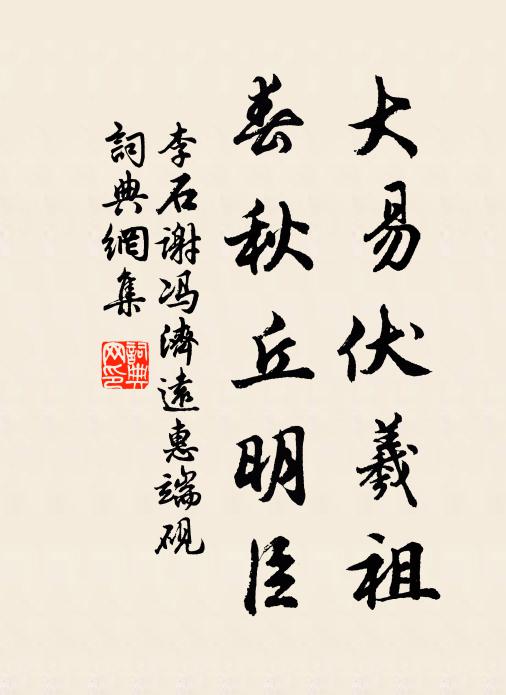 大易伏羲祖
春秋丘明臣
李石谢冯濟遠惠端硯
詞典網集
詞典
网印